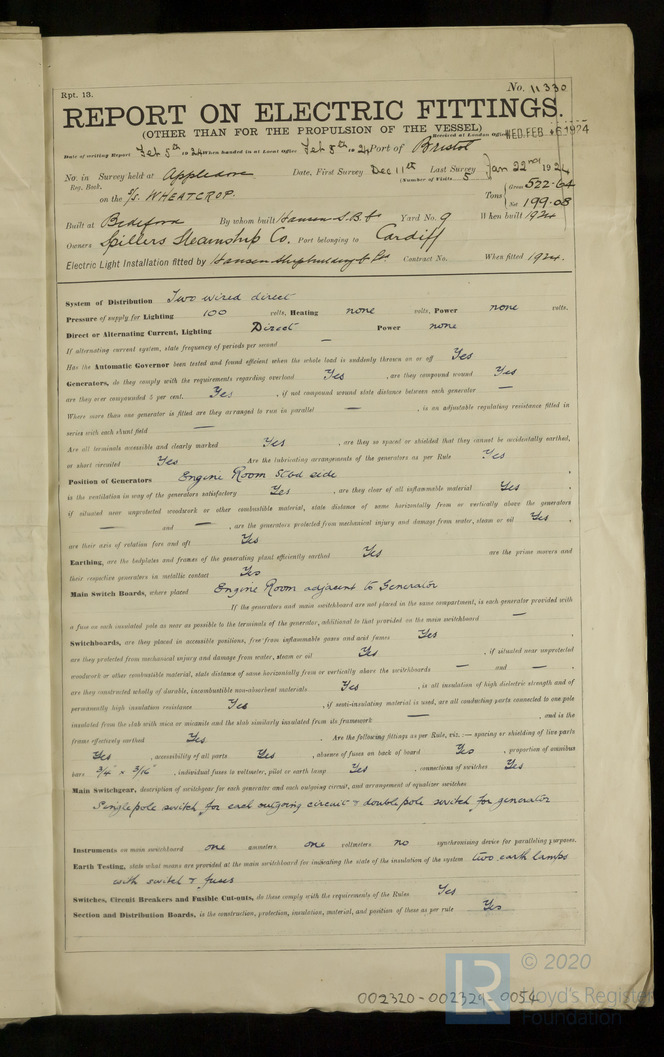 Rpt. 13.
No. 11330
REPORT ON ELECTRIC FITTINGS.
(OTHER THAN FOR THE PROPULSION OF THE VESSEL)
Received at London Office WED. FEB. 6 1924
Date of writing Report Feb 5th 1924 When handed in at Local Office Feb 5th 1924 Port of Bristol
No. in Survey held at Appledore Date, First Survey Dec 11th Last Survey Jan 22nd 1924
Reg. Book. (Number of Visits 5
on the S/S. WHEATCROP. Tons { Gross 522.64
Net 199.08
Built at Bideford By whom built Hansen S.B. Co Yard No. 9 When built 1924
Owners Spillers Steamship Co. Port belonging to Cardiff
Electric Light Installation fitted by Hansen Shipbuilding Co Contract No. When fitted 1924.
System of Distribution Two wired direct
Pressure of supply for Lighting 100 volts, Heating none volts, Power none volts.
Direct or Alternating Current, Lighting Direct Power none
If alternating current system, state frequency of periods per second —
Has the Automatic Governor been tested and found efficient when the whole load is suddenly thrown on or off Yes
Generators, do they comply with the requirements regarding overload Yes , are they compound wound Yes
are they over compounded 5 per cent. Yes , if not compound wound state distance between each generator —
Where more than one generator is fitted are they arranged to run in parallel — , is an adjustable regulating resistance fitted in
series with each shunt field —
Are all terminals accessible and clearly marked Yes , are they so spaced or shielded that they cannot be accidentally earthed,
or short circuited Yes Are the lubricating arrangements of the generators as per Rule Yes
Position of Generators Engine Room Stbd side
is the ventilation in way of the generators satisfactory Yes , are they clear of all inflammable material Yes ,
if situated near unprotected woodwork or other combustible material, state distance of same horizontally from or vertically above the generators
— and — , are the generators protected from mechanical injury and damage from water, steam or oil Yes ,
are their axis of rotation fore and aft Yes
Earthing, are the bedplates and frames of the generating plant efficiently earthed Yes are the prime movers and
their respective generators in metallic contact Yes
Main Switch Boards, where placed Engine Room adjacent to Generator
If the generators and main switchboard are not placed in the same compartment, is each generator provided with
a fuse on each insulated pole as near as possible to the terminals of the generator, additional to that provided on the main switchboard —
Switchboards, are they placed in accessible positions, free from inflammable gases and acid fumes Yes ,
are they protected from mechanical injury and damage from water, steam or oil Yes , if situated near unprotected
woodwork or other combustible material, state distance of same horizontally from or vertically above the switchboards — and — ,
are they constructed wholly of durable, incombustible non-absorbent materials Yes , is all insulation of high dielectric strength and of
permanently high insulation resistance Yes , if semi-insulating material is used, are all conducting parts connected to one pole
insulated from the slab with mica or micanite and the slab similarly insulated from its framework — , and is the
frame effectively earthed Yes . Are the following fittings as per Rule, viz.:— spacing or shielding of live parts
Yes , accessibility of all parts Yes , absence of fuses on back of board Yes , proportion of omnibus
bars 3/4" x 3/16" , individual fuses to voltmeter, pilot or earth lamp Yes , connections of switches Yes
Main Switchgear, description of switchgear for each generator and each outgoing circuit, and arrangement of equalizer switches
Single pole switch for each outgoing circuit & double pole switch for generator
Instruments on main switchboard one ammeters one voltmeters no synchronising device for paralleling purposes.
Earth Testing, state what means are provided at the main switchboard for indicating the state of the insulation of the system two earth lamps
with switch & fuses
Switches, Circuit Breakers and Fusible Cut-outs, do these comply with the requirements of the Rules Yes
Section and Distribution Boards, is the construction, protection, insulation, material, and position of these as per rule Yes
002320-002329-0054
LR
© 2020
Lloyd's Register
Foundation